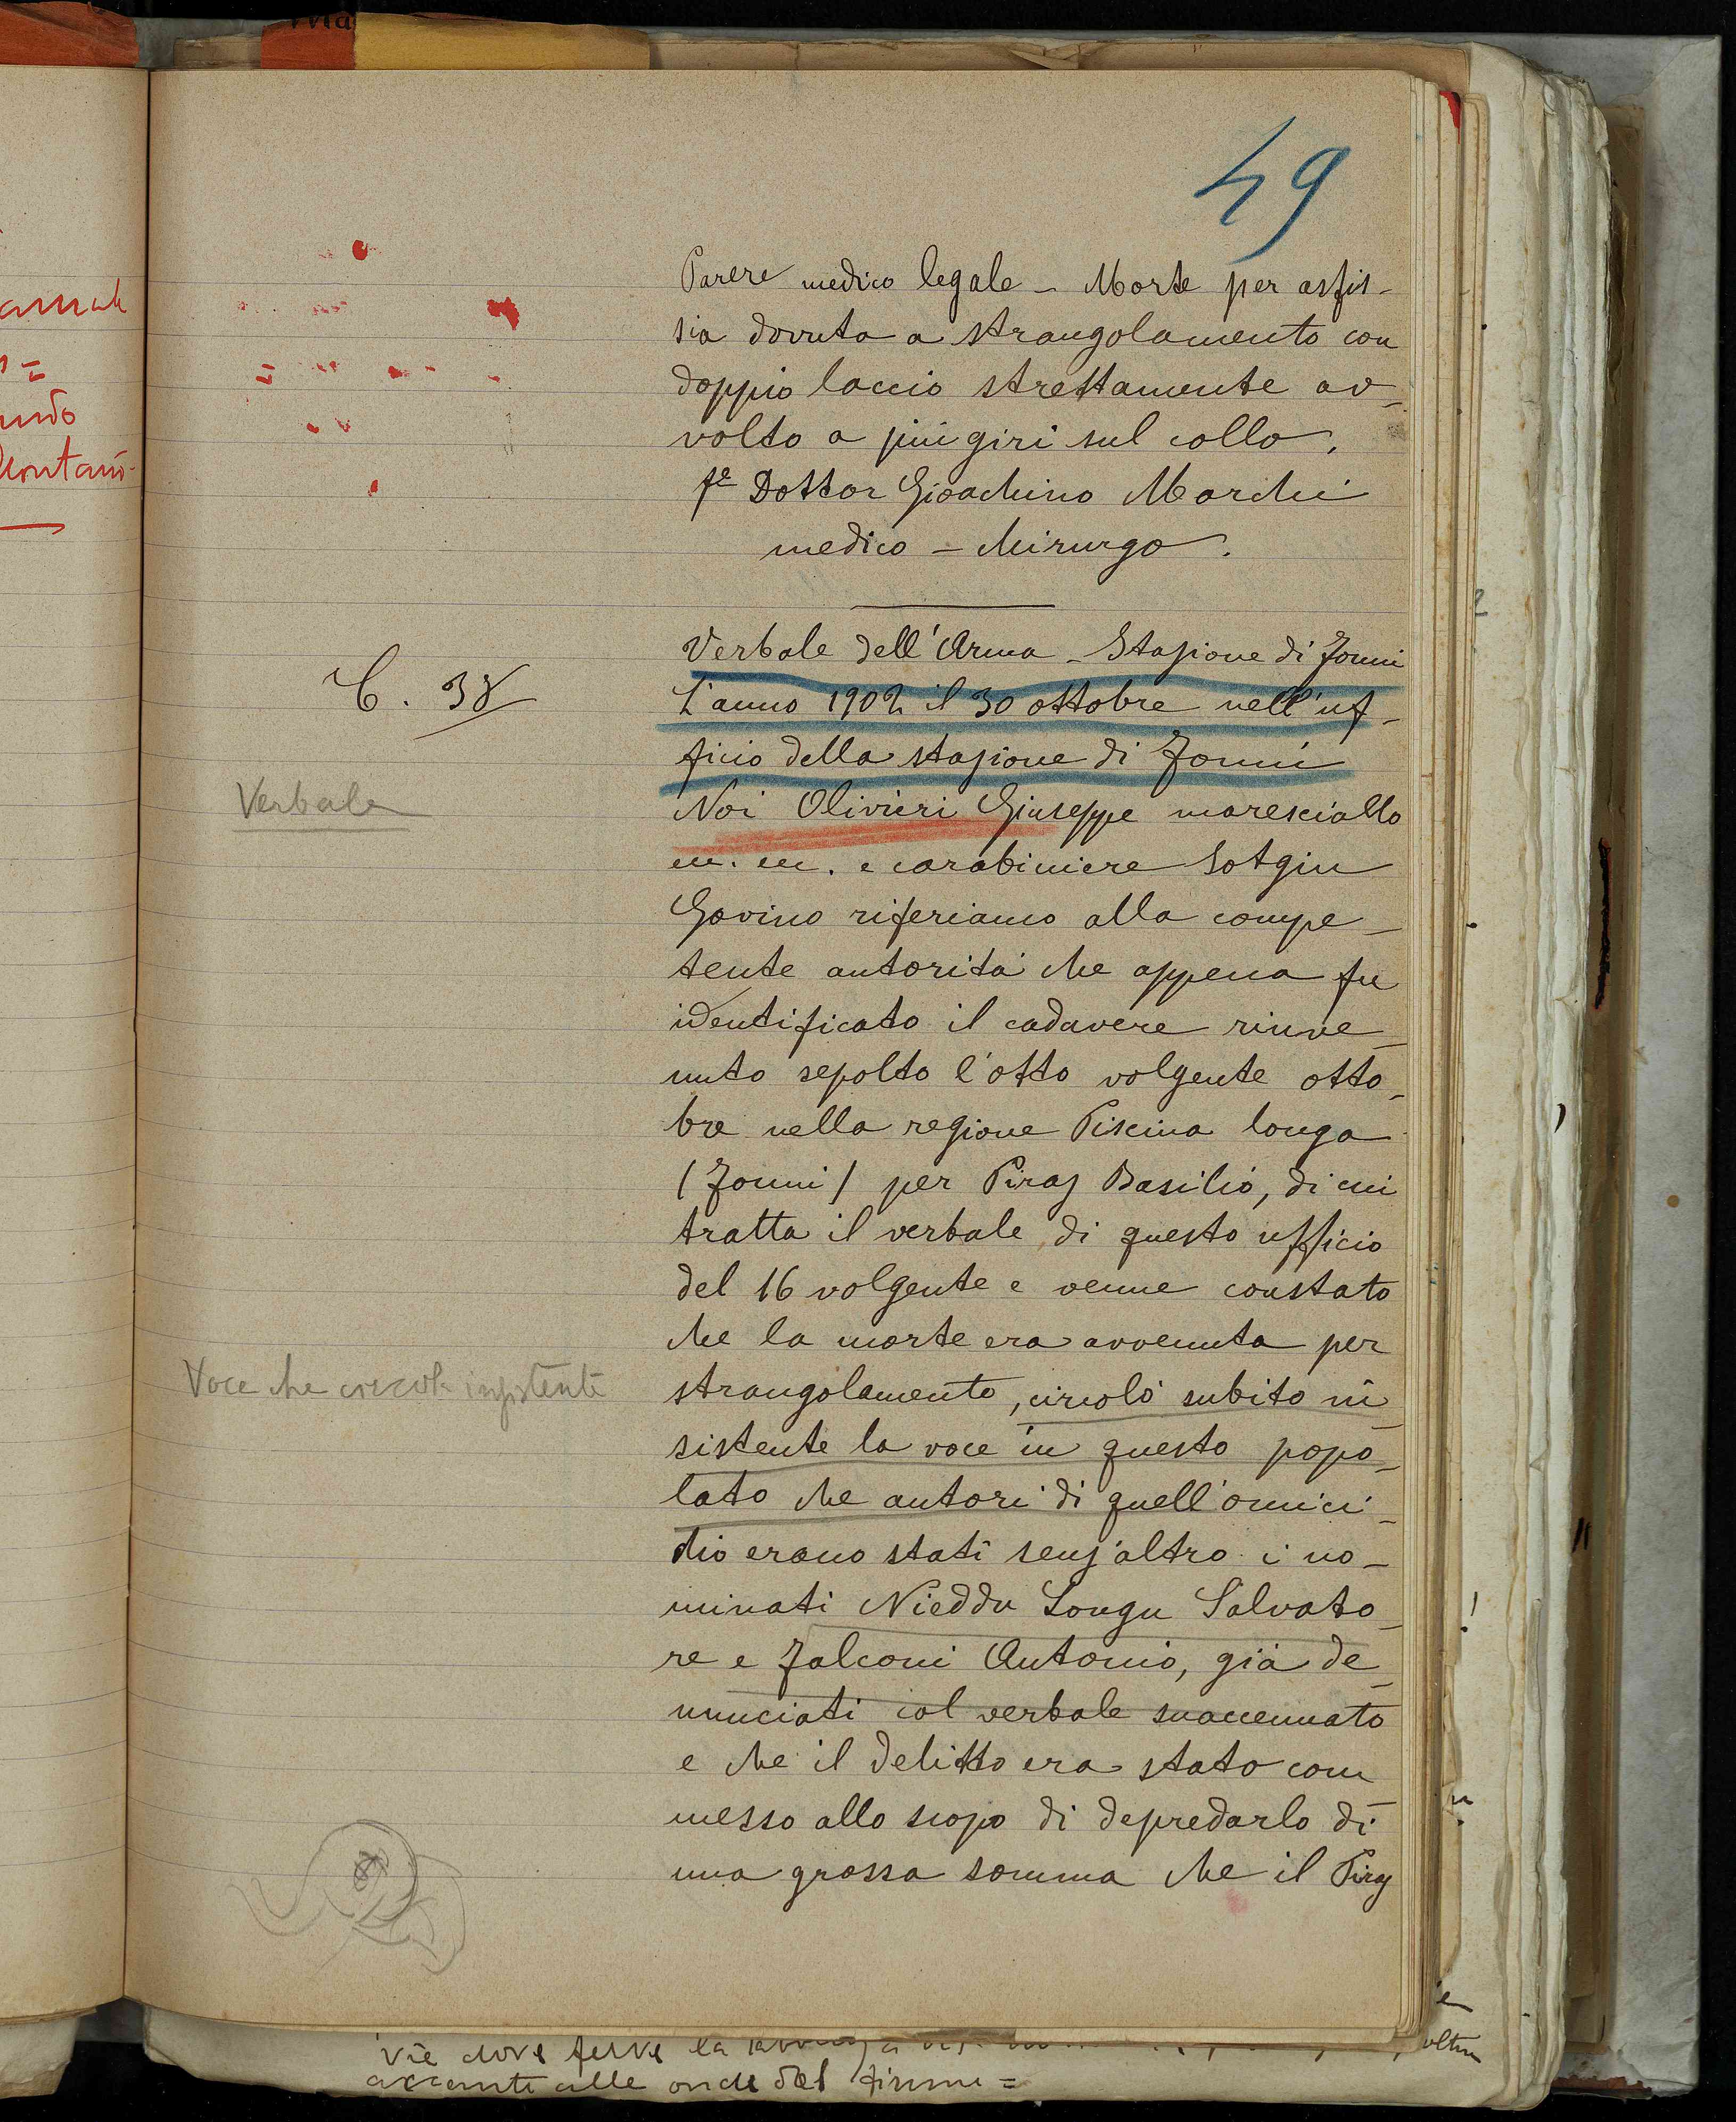 49
Parere medico legale – Morte per asfis-
sia dovuta a strangolamento con
doppio laccio strettamente av-
volto a più giri sul collo.
Dottor Gioachino Marchi
medico – chirurgo.
Verbale dell'Arma – Stazione di Fonni
C. 38
L'anno 1902 il 30 ottobre nell'uf-
ficio della stazione di Fonni
Verbale
Noi Olivieri Giuseppe maresciallo
m. m. e carabiniere Sotgiu
Gavino riferiamo alla compe-
tente autorità che appena fu
identificato il cadavere rinve-
nuto sepolto l'otto volgente otto-
bre nella regione Piscina longa
(Fonni) per Piras Basilio, di cui
tratta il verbale di questo ufficio
del 16 volgente e venne constato
che la morte era avvenuta per
Voce che circola insistente
strangolamento, circolò subito in-
sistente la voce in questo popo-
lato che autori di quell'omici-
dio erano stati senz'altro i no-
minati Nieddu Longu Salvato-
re e Falconi Antonio, già de-
nunciati col verbale suaccennato
e che il delitto era stato com-
messo allo scopo di depredarlo di
una grossa somma che il Piras
accanto alle onde del fiume =